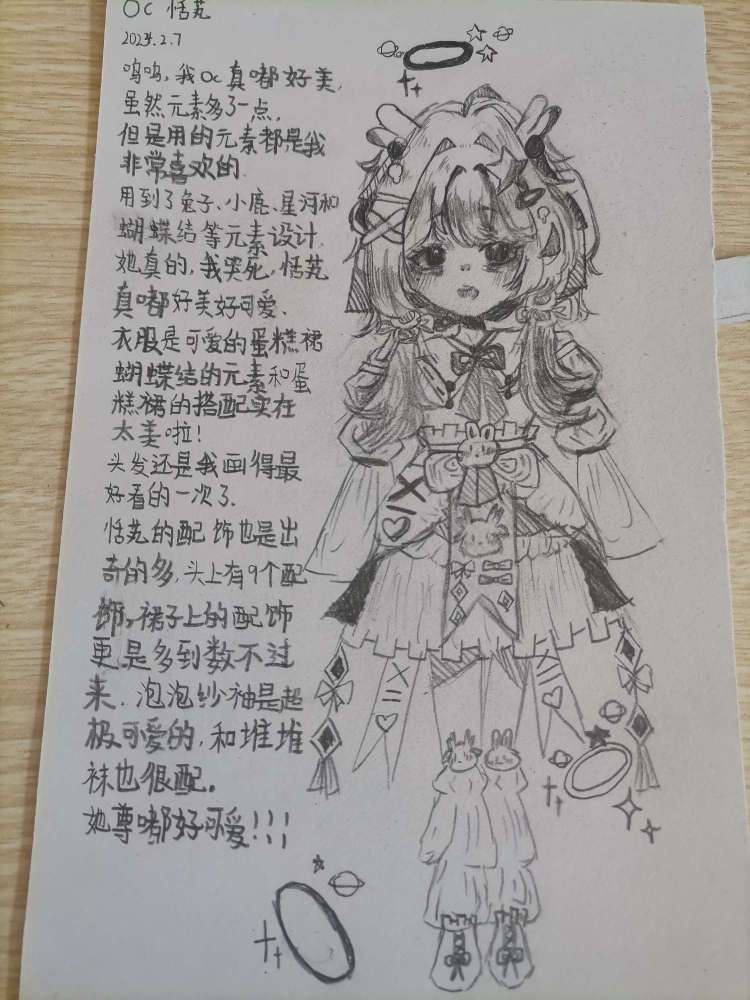 OC 恬芜
2024.2.7
呜呜,我oc真嘟好美,
虽然元素多了一点,
但是用的元素都是我
非常喜欢的.
用到了兔子、小鹿、星河和
蝴蝶结等元素设计.
她真的,我哭死,恬芜
真嘟好美好可爱、
衣服是可爱的蛋糕裙
蝴蝶结的元素和蛋
糕裙的搭配实在
太美啦!
头发还是我画得最
好看的一次了.
恬芜的配饰也是出
奇的多,头上有9个配
饰,裙子上的配饰
更是多到数不过
来.泡泡纱袖是超
极可爱的,和堆堆
袜也很配.
她尊嘟好可爱!!!